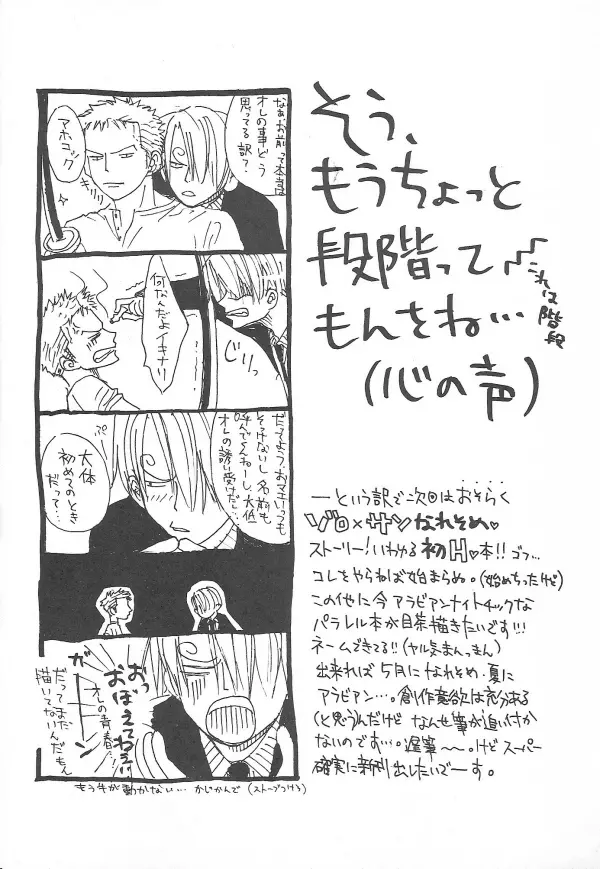 そう、
もうちょっと
段階って
もんさね…
(心の声)
これは階段
なぁお前って本当は
オレの事どう
思ってる訳?
アホコック
何なんだよイキナリ
じりっ
だってよう、おマエいつも
そっけないし名前も
呼んでくんねーし、大体
オレの誘い受けだし…
ぷ
大体
初めてのとき
だって…
おっ
おぼえてねぇ!!
オレの青春…
ガーーン
だってまだ
描いてないんだもん
もう手が動かない… かじかんで (ストーブつけろ)
―という訳で次回はおそらく
ゾロ×サンなれそめ♥
ストーリー!いわゆる初H♥本!!ゴフ…
コレをやらねば始まらぬ。(始めちったけど)
この他に今アラビアンナイトチックな
パラレル本が目茶描きたいです!!!
ネームできてる!!(ヤル気まんまん)
出来れば5月になれそめ・夏に
アラビアン…。創作意欲は充分ある
(と思うんだけど なんせ筆が追い付か
ないのです…。遅筆〜〜。けどスーパー
確実に新刊出したいでーす。